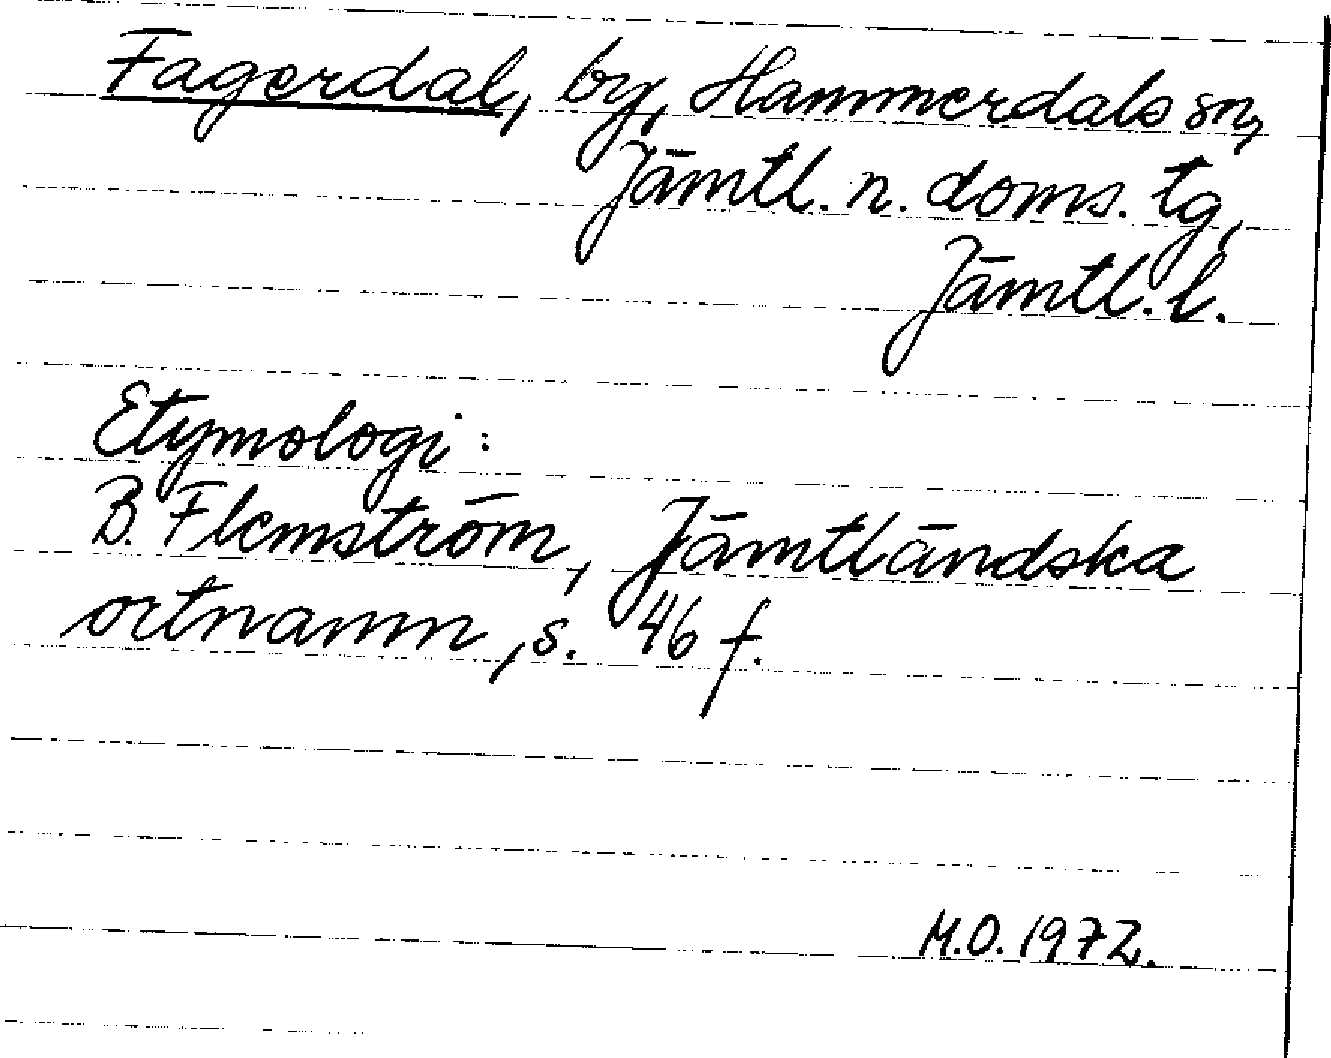 Fagerdal, by, Hammerdals sn,
Jämtl. n. doms. tg,
Jämtl. l.
Etymologi:
B. Flemström, Jämtländska
ortnamn, s. 46 f.
M.O. 1972.